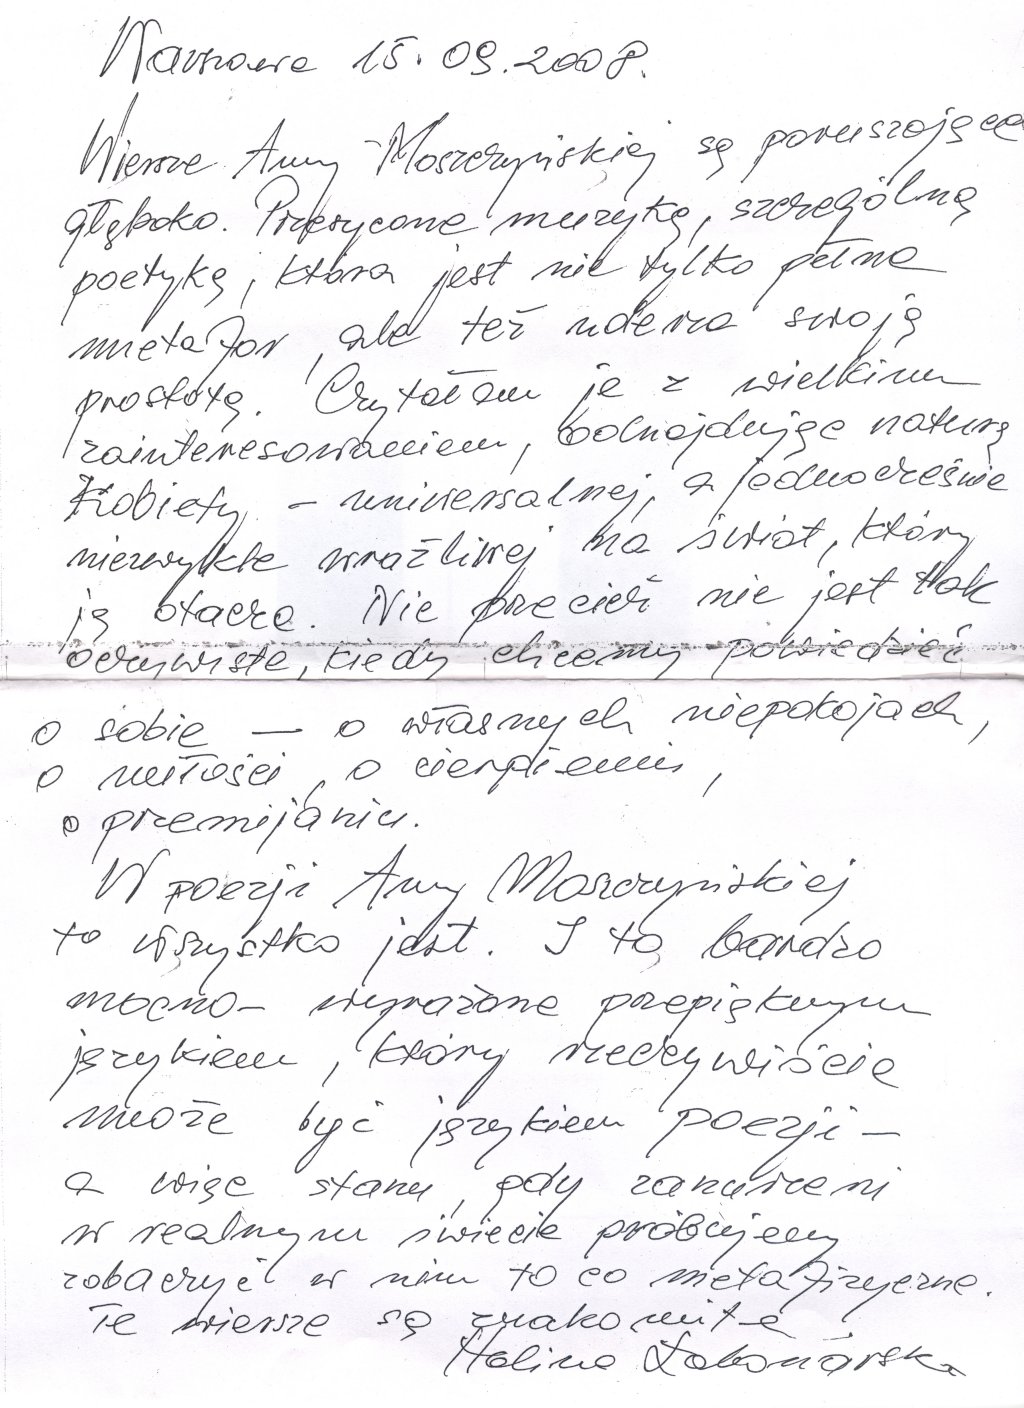 Warszawa 15.09.2008.
Wiersze Anny Moszczyńskiej są poruszające
głęboko. Przesycone muzyką, szczególną
poetyką, która jest nie tylko pełna
metafor, ale też uderza swoją
prostotą. Czytałam je z wielkim
zainteresowaniem, odnajdując naturę
Kobiety – uniwersalnej, a jednocześnie
niezwykle wrażliwej na świat, który
ją otacza. Nic przecież nie jest tak
oczywiste, kiedy chcemy powiedzieć
o sobie — o własnych niepokojach,
o miłości, o cierpieniu,
o przemijaniu.
W poezji Anny Moszczyńskiej
to wszystko jest. I to bardzo
mocno – wyrażone przepięknym
językiem, który rzeczywiście
może być językiem poezji –
a więc stanu, gdy zanurzeni
w realnym świecie próbujemy
zobaczyć w nim to co metafizyczne.
Te wiersze są znakomite
Halina Łabonarska